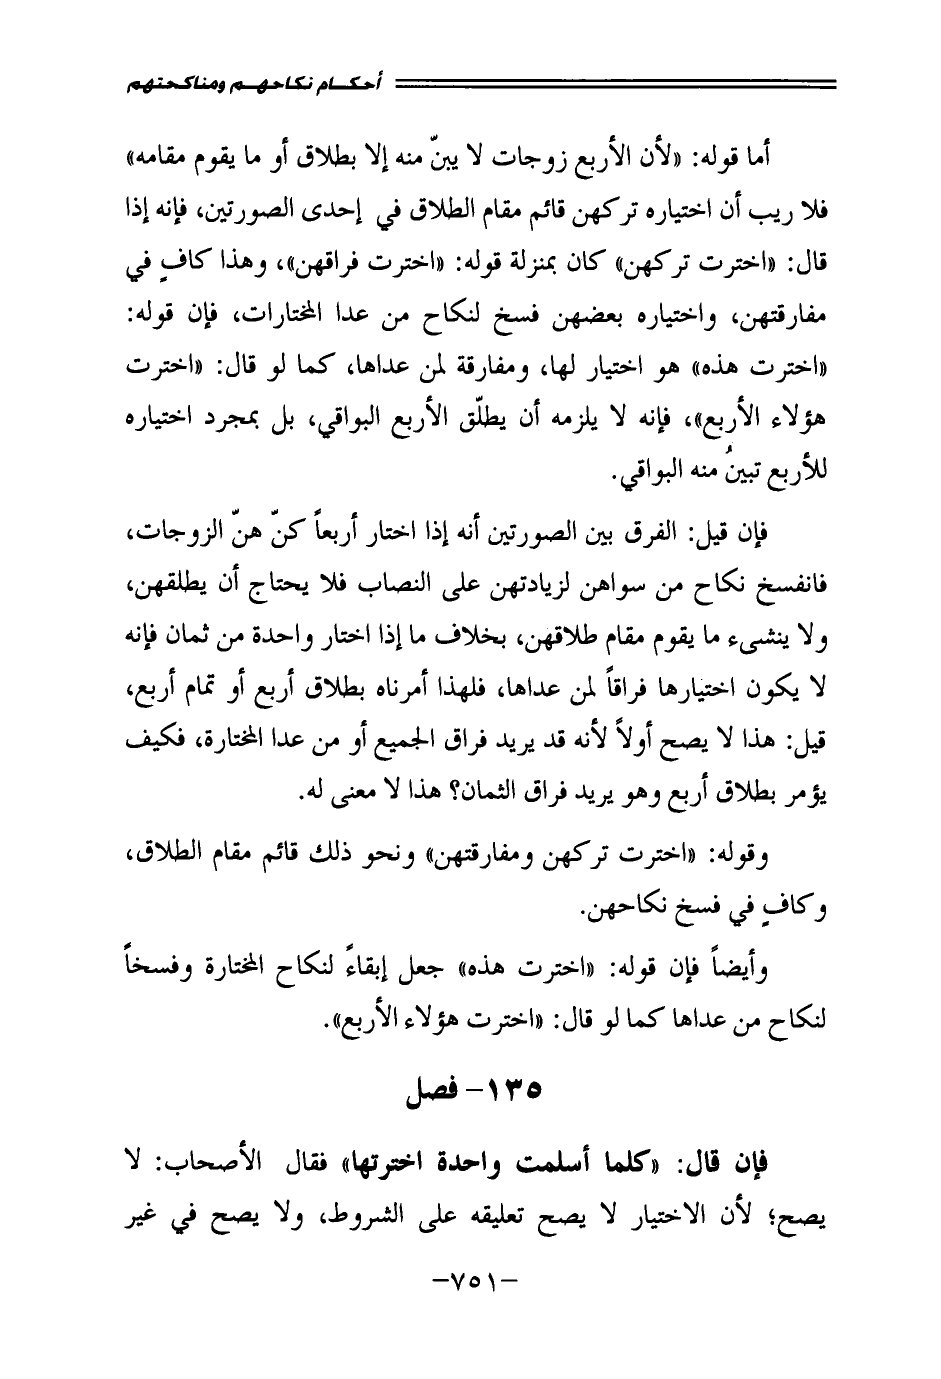 أحكام نكاحهم ومناكحتهم
أما قوله: «لأن الأربع زوجات لا يبنّ منه إلا بطلاق أو ما يقوم مقامه»
فلا ريب أن اختياره تركهن قائم مقام الطلاق في إحدى الصورتين، فإنه إذا
قال: «اخترت تركهن» كان بمنزلة قوله: «اخترت فراقهن»، وهذا كافٍ في
مفارقتهن، واختياره بعضهن فسخ لنكاح من عدا المختارات، فإن قوله:
«اخترت هذه» هو اختيار لها، ومفارقة لمن عداها، كما لو قال: «اخترت
هؤلاء الأربع»، فإنه لا يلزمه أن يطلّق الأربع البواقي، بل بمجرد اختياره
للأربع تبينُ منه البواقي.
فإن قيل: الفرق بين الصورتين أنه إذا اختار أربعاً كنّ هنّ الزوجات،
فانفسخ نكاح من سواهن لزيادتهن على النصاب فلا يحتاج أن يطلقهن،
ولا ينشىء ما يقوم مقام طلاقهن، بخلاف ما إذا اختار واحدة من ثمان فإنه
لا يكون اختيارها فراقاً لمن عداها، فلهذا أمرناه بطلاق أربع أو تمام أربع،
قيل: هذا لا يصح أولاً لأنه قد يريد فراق الجميع أو من عدا المختارة، فكيف
يؤمر بطلاق أربع وهو يريد فراق الثمان؟ هذا لا معنى له.
وقوله: «اخترت تركهن ومفارقتهن» ونحو ذلك قائم مقام الطلاق،
وكافٍ في فسخ نكاحهن.
وأيضاً فإن قوله: «اخترت هذه» جعل إبقاءً لنكاح المختارة وفسخاً
لنكاح من عداها كما لو قال: «اخترت هؤلاء الأربع».
١٣٥- فصل
فإن قال: «كلما أسلمت واحدة اخترتها» فقال الأصحاب: لا
يصح؛ لأن الاختيار لا يصح تعليقه على الشروط، ولا يصح في غير
-٧٥١-